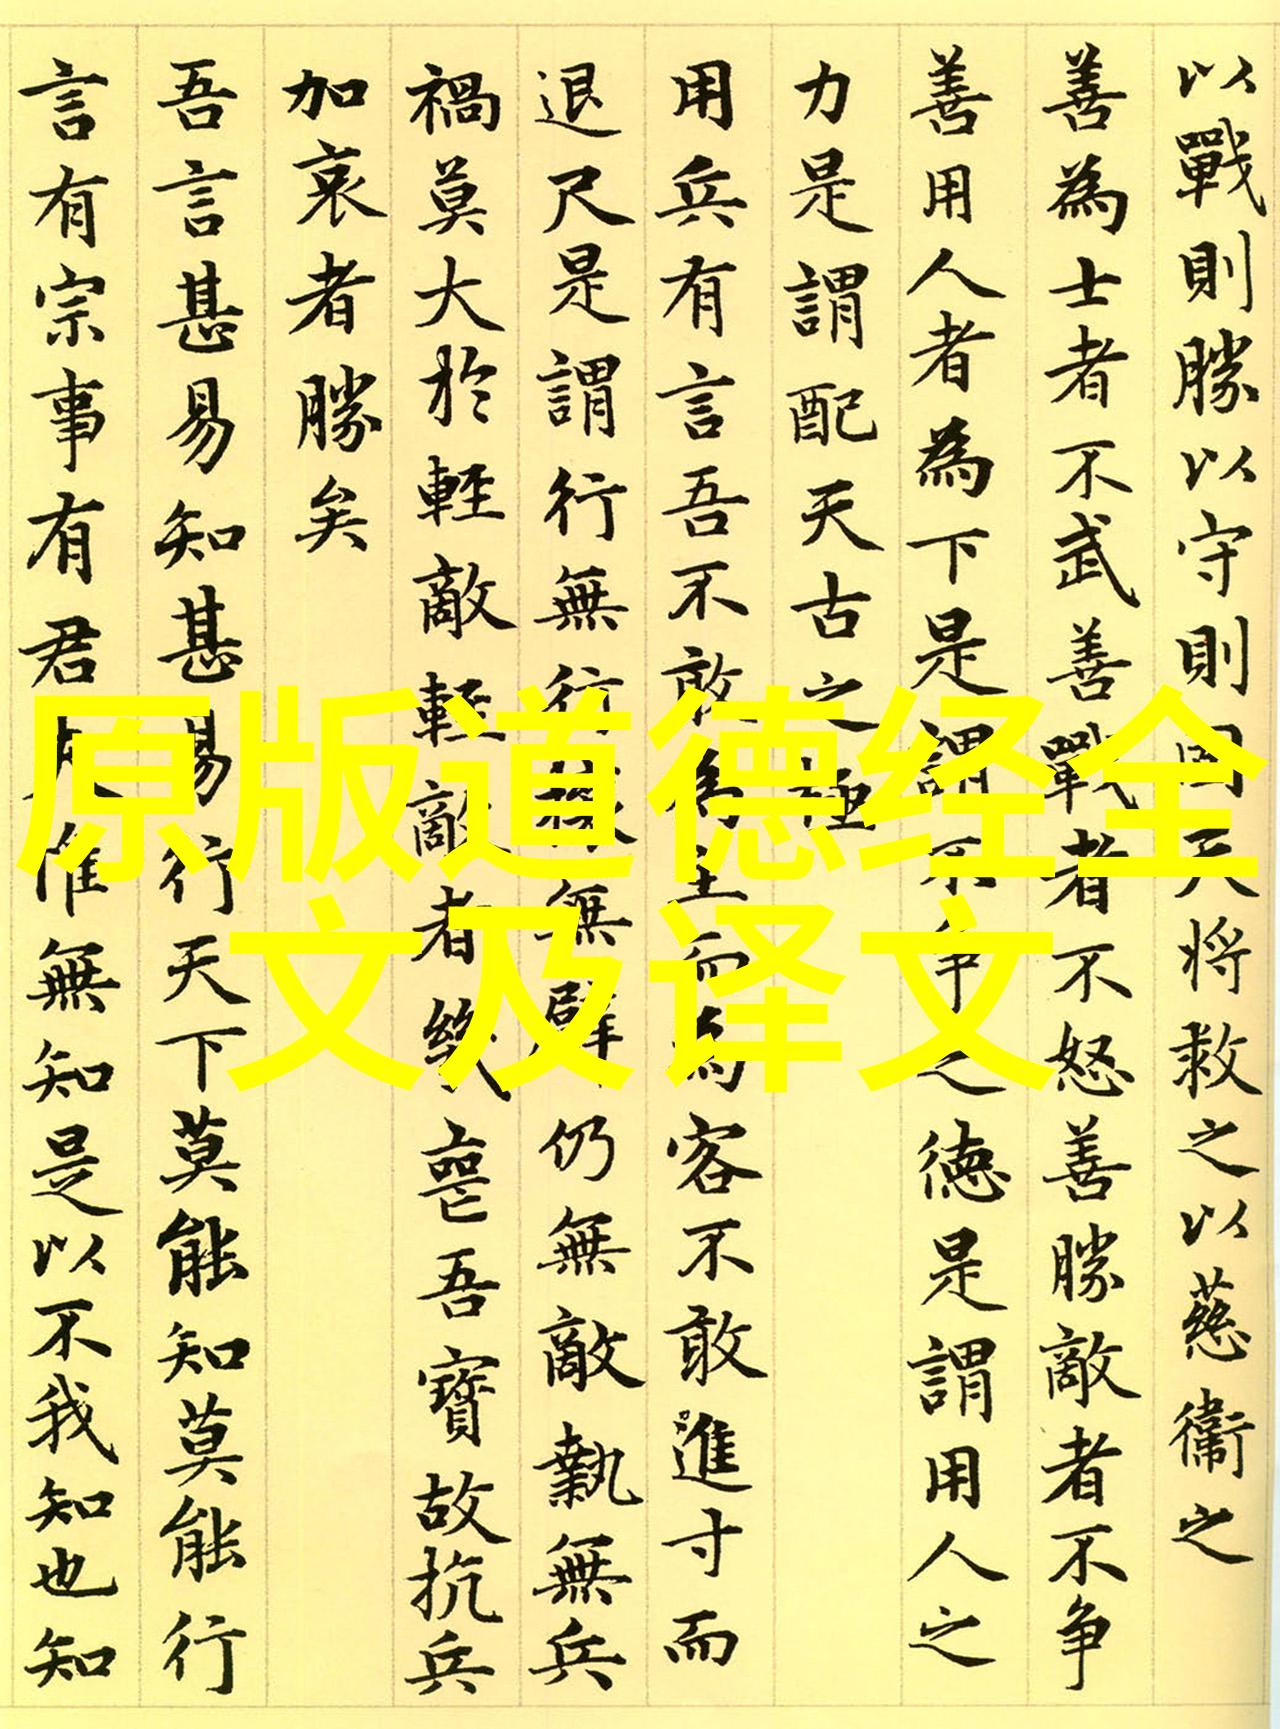 以戰則勝以守則固天将救之以慈衛之
善為士者不武善戰者不怒善勝敵者不争
善用人者為下是謂不争之德是謂用人之
力是謂配天古之極
用兵有言吾不敢為主而為客不敢進寸而
退尺是謂行無行攘無臂仍無敵執無兵
禍莫大於輕敵輕敵者幾喪吾寶故抗兵
加哀者勝矣
吾言甚易知甚易行天下莫能知莫能行
言有宗事有君夫惟無知是以不我知也知
原版道德经全
文及译文